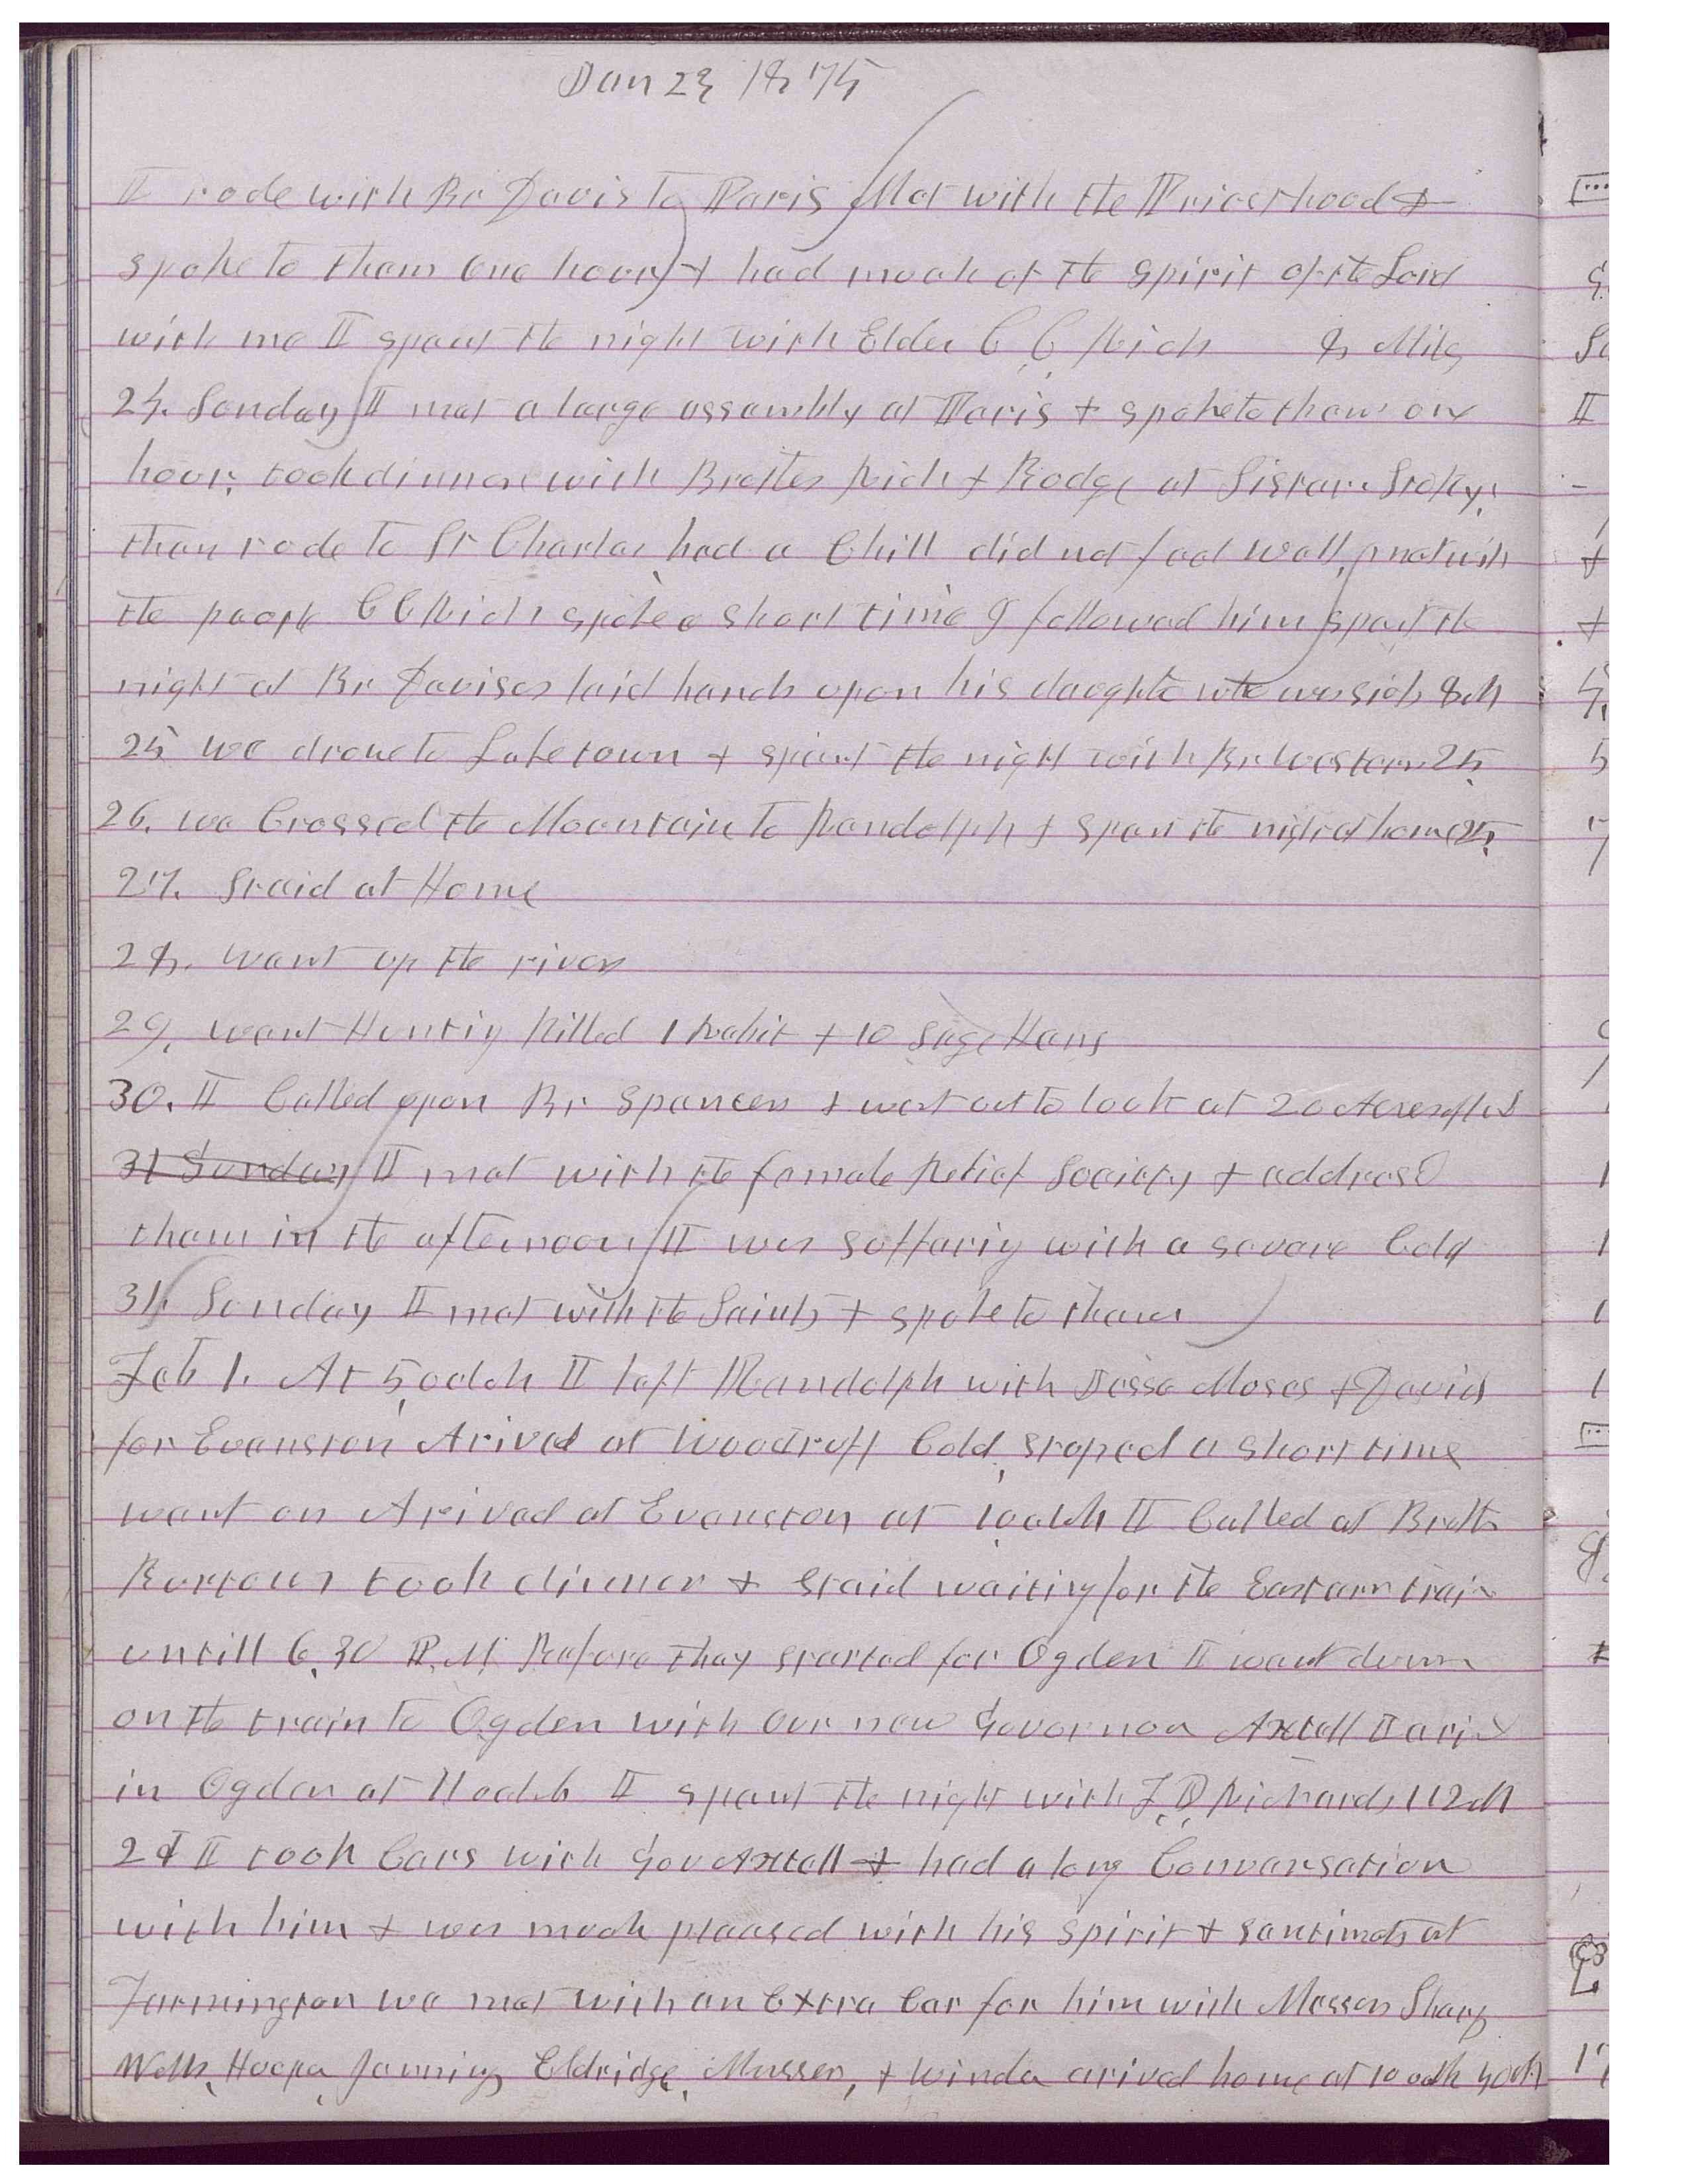 Jan 23 1875
I rode with Br Davis to Paris Met with the Priesthood &
spoke to them one hour & had much of the spirit of the Lord
with me I spent the night with Elder C, C, Rich 8 Miles
24. Sunday I met a large assembly at Paris & spoke to them one
hour, took dinner with Brother Rich & Budge at Sister
then rode to St Charles, had a Chill did not feel well, met with
the people C C Rich spoke a short time I followed him spent the
night at Br Davises laid hands upon his daughter who was sick 8 M
25 we drove to Laketown & spent the night with Br Weston 25,
26. we Crossed the Mountain to Randolph & spent the night at home 25,
27. Staid at Home
28. went up the river
29, went Hunting killed 1 Rabit & 10 Sage Hens
30. I Called upon Br Spencer & went out to look at 20 Acres of
31 Sunday I met with the female Relief Society & addresd
them in the afternoon I was suffering with a severe Cold
31, Sunday I met with the Saints & spoke to them
Feb 1. At 5, oclok I left Randolph with Jesse Moses & David
for Evanston Arived at Woodruff Cold, stoped a short time
went on Arived at Evanston at 10 oclok I Called at Brother
Burtons took dinner & staid waiting for the Eastern train
untill 6,30 P.M. Before they started for Ogden I went down
on the train to Ogden with our new Governor Axtell I arivd
in Ogden at 11 oclok I spent the night with F, D, Richards 112 M
2d I took Cars with Gov Axtell & had a long Conversation
with him & was much pleased with his spirit & sentiments at
Farmington we met with an Extra Car for him with Messrs Sharp
Wells, Hooper, Jennings Eldridge, Musser, & Winder arived home at 10 oclk 40 M